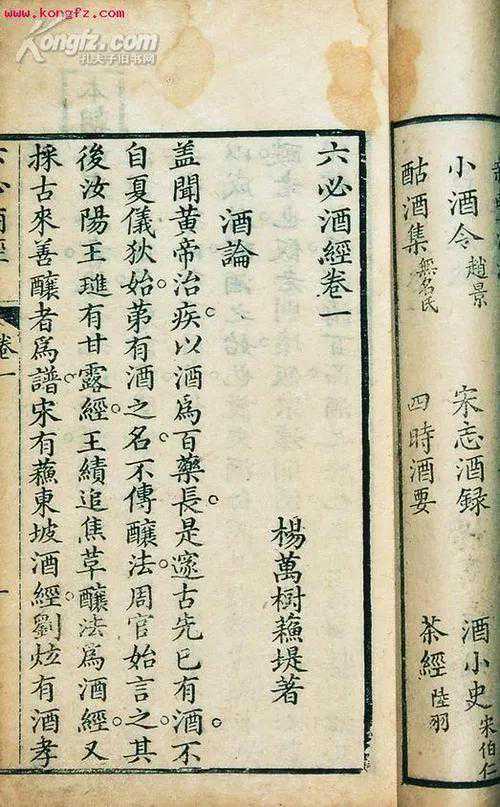 www.kongfz.com
Kongfz.com
孔夫子旧书网
小酒令 趙景 宋志酒録 酒小史 宋伯仁
酤酒集 無名氏 四時酒要 茶經 陸羽
六必酒經卷一
楊萬樹蘓堤著
酒論
蓋聞黄帝治疾以酒爲百藥長。是邃古先已有酒。不
自夏儀狄始。苐有酒之名。不傳釀法。周官始言之。其
後汝陽王璡有甘露經。王績追焦草釀法爲酒經。又
採古來善釀者爲譜。宋有蘓東坡酒經。劉炫有酒孝
六必酒經 卷一 一